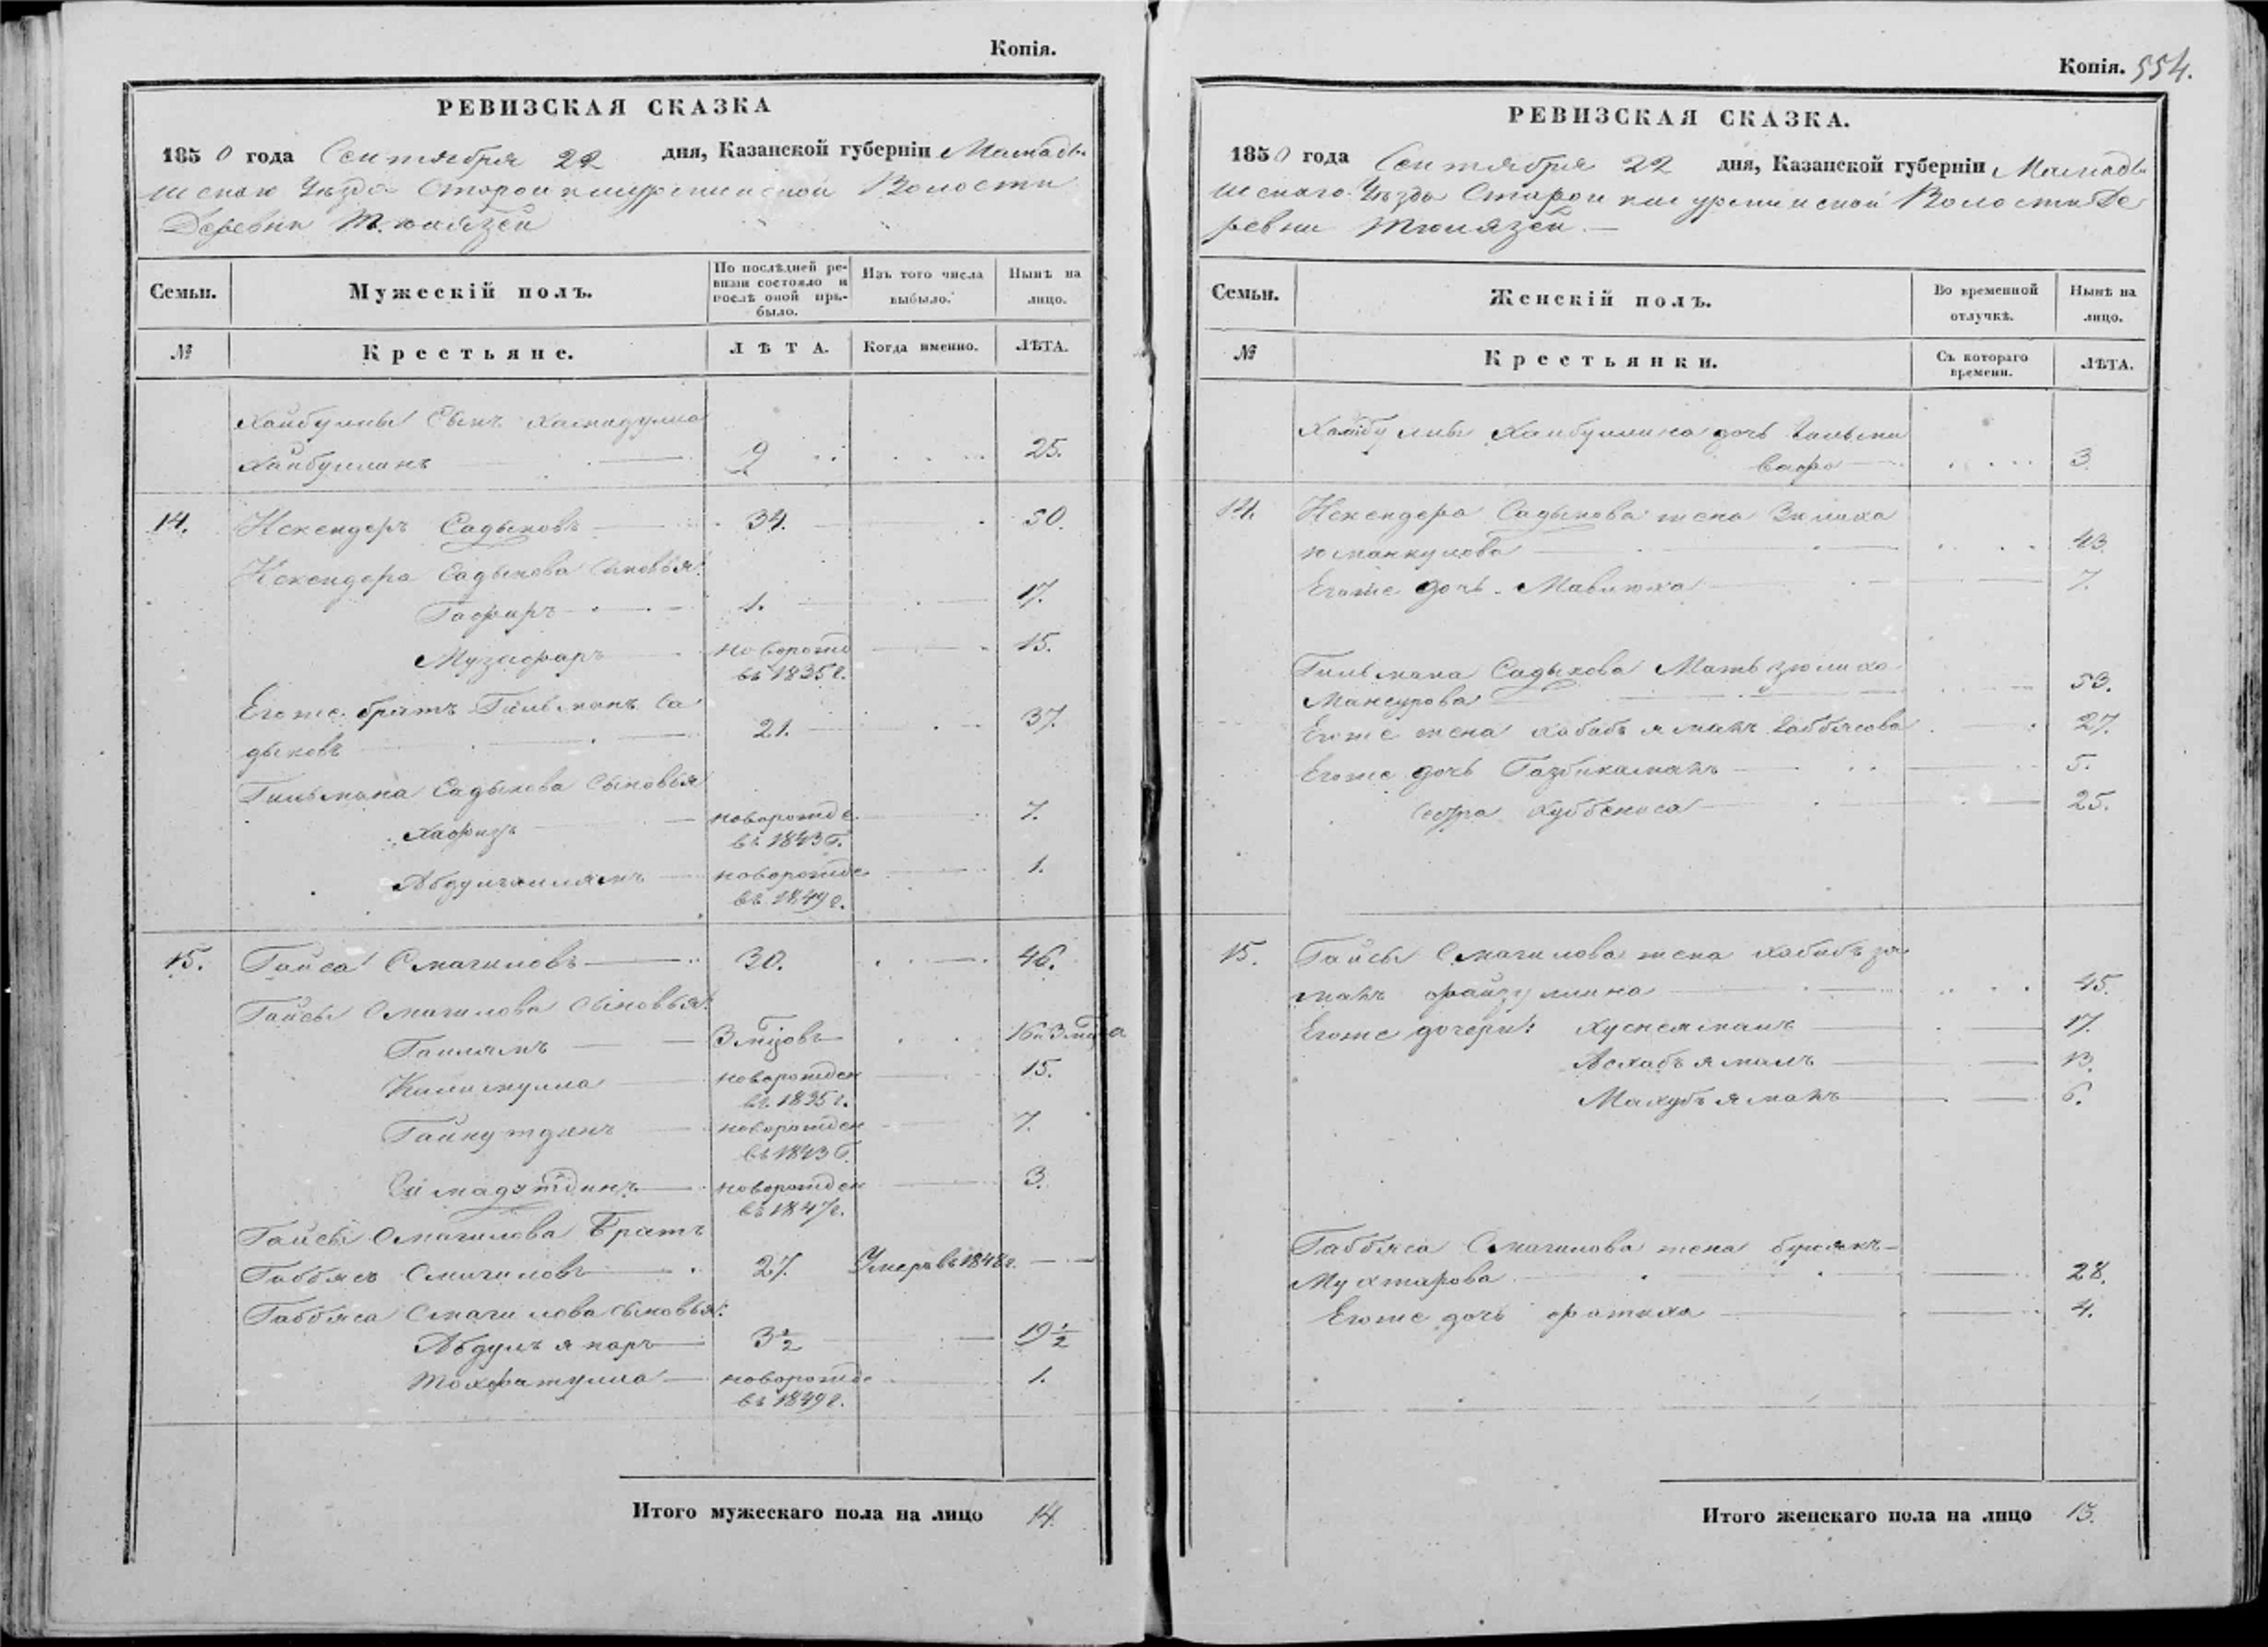 Копія.
РЕВИЗСКАЯ СКАЗКА
1850 года Сентября 22 дня, Казанской губерніи Мамады
шскаго Уѣзда Старой Волости
Деревни Тюлязей
Семьи. Мужескій полъ. По послѣдней ревизіи состояло и послѣ оной прибыло. Изъ того числа выбыло. Нынѣ на лицо.
№ Крестьяне. ЛѢТА. Когда именно. ЛѢТА.
Хайбуллы Сынъ Хамидулла
Хайбуллинъ 9 25.
14. Искендеръ Садыковъ 34. 50.
Искендера Садыкова Сыновья:
Гафаръ 1. 17.
Музафаръ новорожд 15.
въ 1835 г.
Егоже братъ Гильманъ Са
дыковъ 21. 37.
Гильмана Садыкова Сыновья
Хафизъ новорожде 7.
въ 1843 г.
Абдулгаллямъ новорожде 1.
въ 1849 г.
15. Гайса Смагиловъ 30. 46.
Гайсы Смагилова Сыновья:
Галлямъ 3 мцовъ 16 и 3 мца
Калимулла новорожден 15.
въ 1835 г.
Гайнутдинъ новорожден 7.
въ 1843 г.
новорожден 3.
въ 1847 г.
Гайсы Смагилова Братъ
Габбясъ Смагиловъ 27. Умеръ въ 1848 г.
Габбяса Смагилова Сыновья:
Абдулъ япаръ 3½ 19½
Тохфатулла новорожде 1.
въ 1849 г.
Итого мужескаго пола на лицо 14.
Копія. 554.
РЕВИЗСКАЯ СКАЗКА.
1850 года Сентября 22 дня, Казанской губерніи Мамады
шскаго Уѣзда Старой Волости Де
ревни Тюлязей.
Семьи. Женскій полъ. Во временной отлучкѣ. Нынѣ на лицо.
№ Крестьянки. Съ котораго времени. ЛѢТА.
Хайбуллы Хайбуллина дочь Гальми
вафа 3
14. Искендера Садыкова жена Зилиха
Юманкулова 43.
Егоже дочь Мавлюха 7.
Гильмана Садыкова Мать Зюлиха
Мансурова 53.
Егоже жена Хабибъ ямалъ Габбясова 27.
Егоже дочь 5.
сестра 25.
15. Гайсы Смагилова жена Хабибъ зя
малъ Файзуллина 45.
Егоже дочери: Хуснеямалъ 17.
Асхабъ ямалъ 13.
Махубъ ямалъ 6.
Габбяса Смагилова жена
Мухтарова 28.
Егоже дочь Фатиха 4.
Итого женскаго пола на лицо 13.